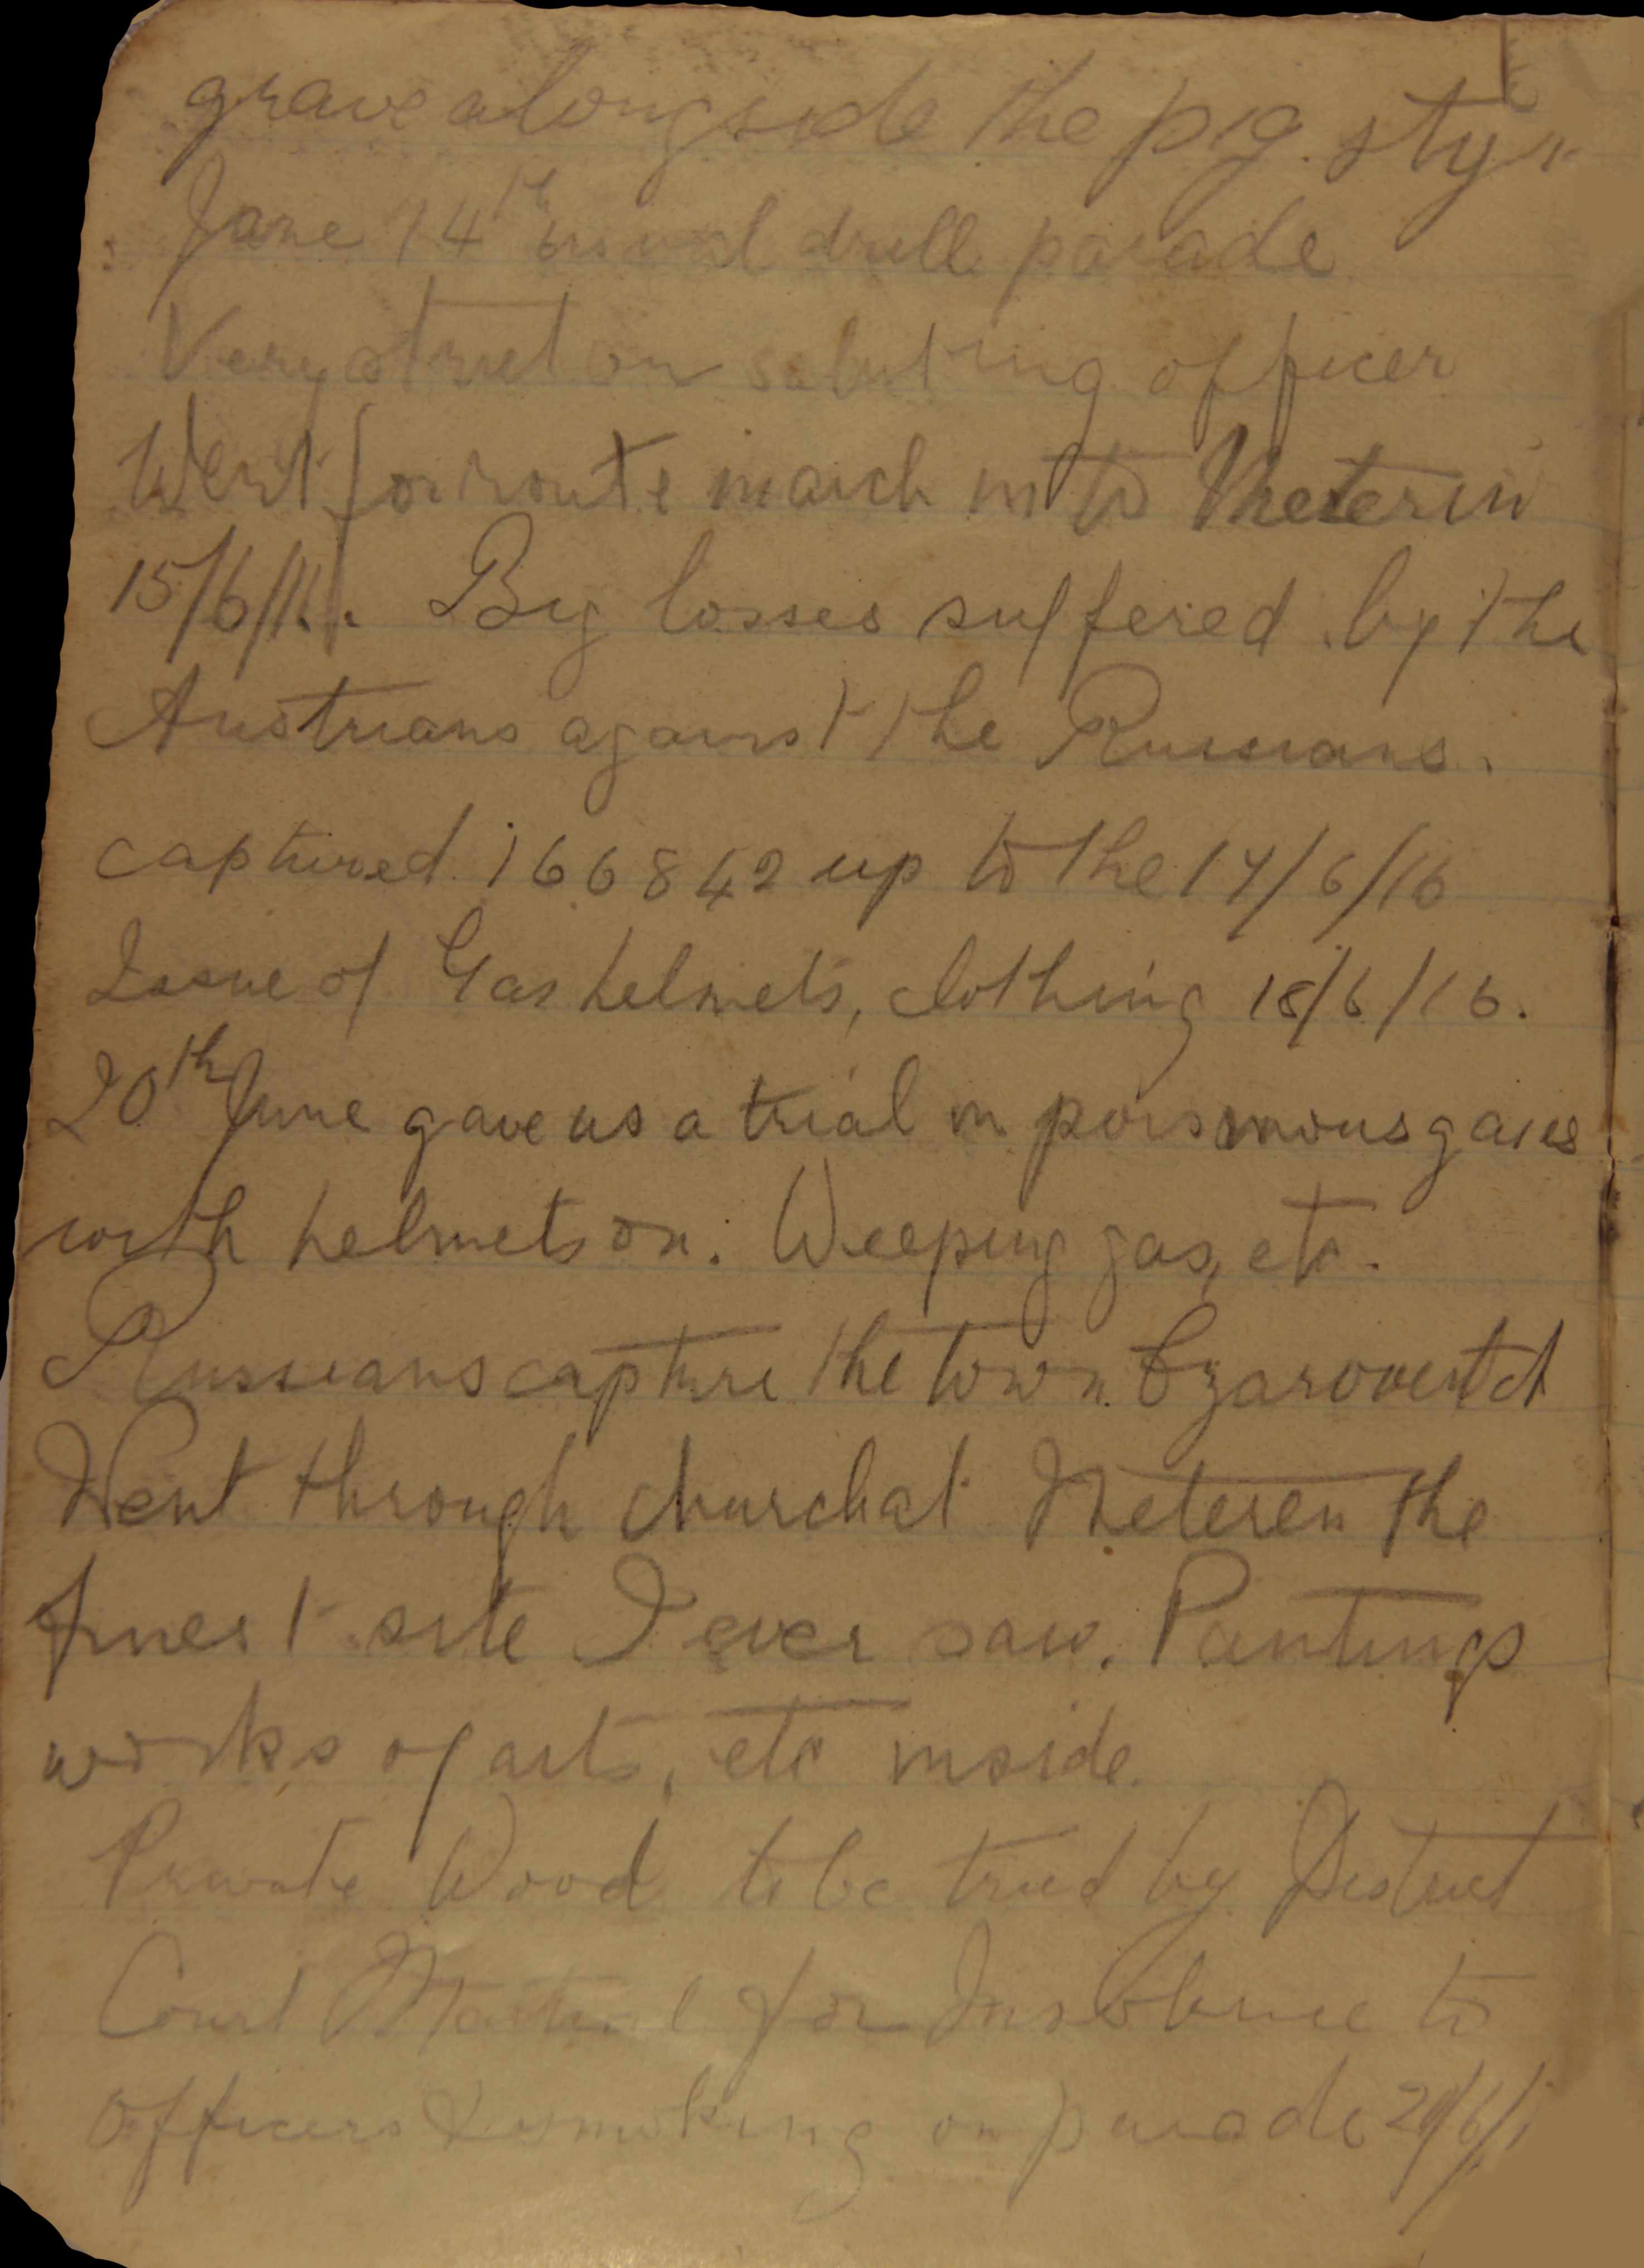 grave alongside the pig sty"
June 14th usual drill parade
Very strict on saluting officer
Went for route march into Meterin
15/6/16. Big losses suffered by the
Austrians against the Russians.
captured 166842 up to the 17/6/16
Issue of Gas helmets, clothing 18/6/16.
20th June gave us a trial in poisonous gases
with helmets on. Weeping gas, etc.
Russians capture the town
Went through church at Meteren the
finest site I ever saw. Pantings
works of arts, etc inside.
Private Wood to be tried by District
Court Martial for Insolence to
Officers & smoking on parade